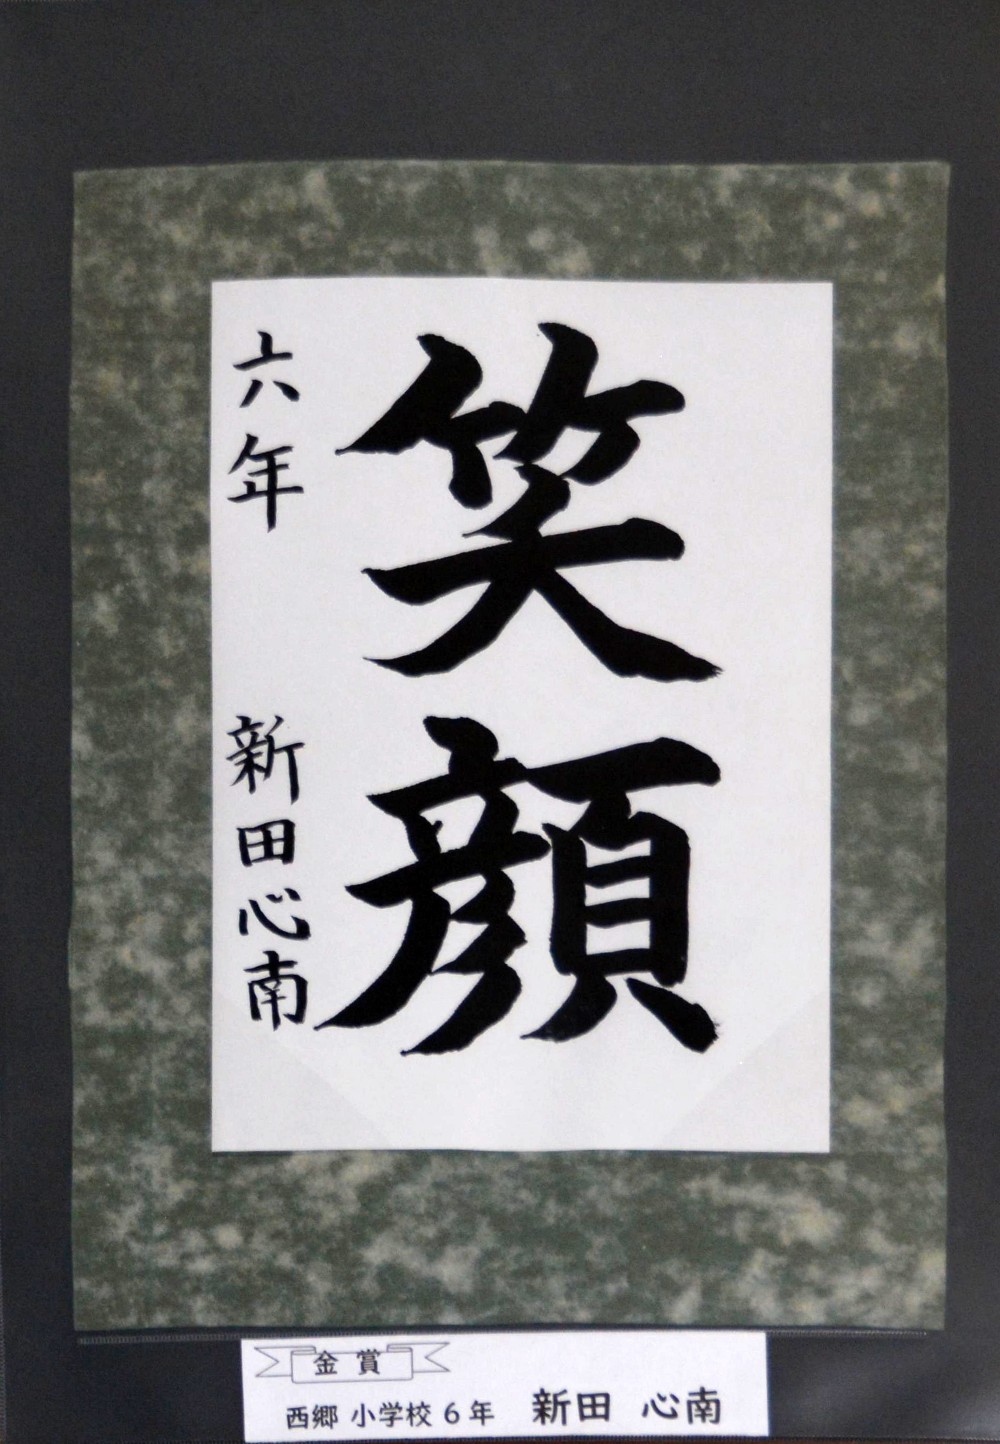 笑顔
六年 新田心南
金賞
西郷 小学校 6年 新田 心南